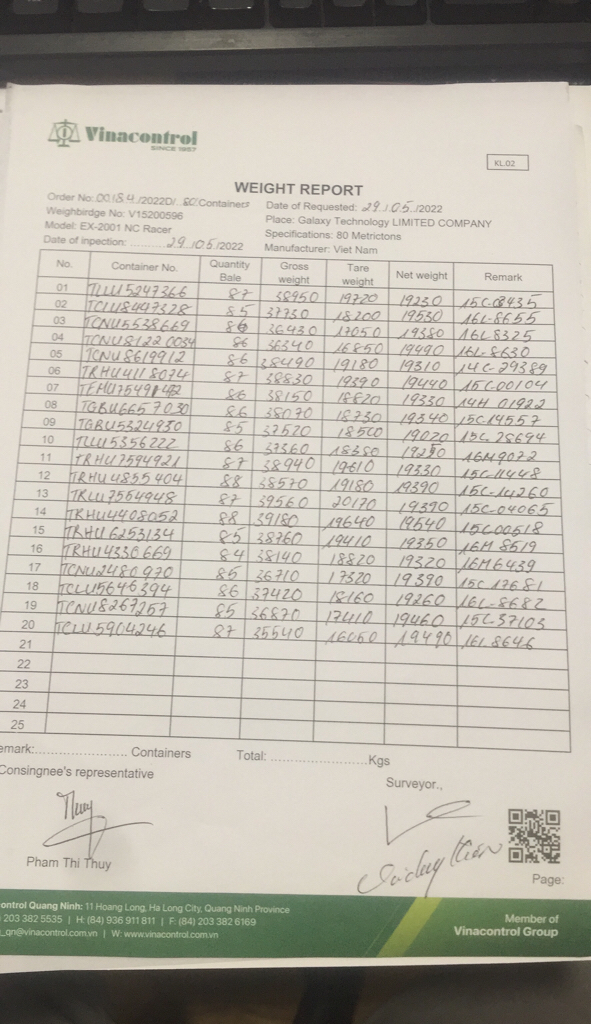 Vinacontrol
SINCE 1957
KL.02
WEIGHT REPORT
Order No: 00184/2022D/ 80 Containers Date of Requested: 29/05/2022
Weighbirdge No: V15200596 Place: Galaxy Technology LIMITED COMPANY
Model: EX-2001 NC Racer Specifications: 80 Metrictons
Date of inpection: ..........29/05/2022 Manufacturer: Viet Nam
No. Container No. Quantity Bale Gross weight Tare weight Net weight Remark
01 TLLU5247366 87 38950 19720 19230 15C-08435
02 TCLU8497328 85 37730 18200 19530 16L-8655
03 TCNU5538669 86 36430 17050 19380 16L8325
04 TCNU8122 0034 86 36340 16850 19490 16L-8630
05 TCNU8619912 86 38490 19180 19310 14C-29389
06 TRHU4118074 87 38830 19390 19440 15C00104
07 86 38150 18820 19330 14H 01922
08 TGBU6657030 86 38070 18730 19340 15C14557
09 TGBU5324930 85 37520 18500 19020 15C 28694
10 TLLU5356222 86 37360 18380 16M9072
11 TRHU7594921 87 38940 19610 19330 15C-11448
12 TRHU4855404 88 38570 19180 19390 15C-14260
13 TRLU7564948 87 39560 20170 19390 15C-04065
14 TRHU4408052 88 39180 19640 19540 15C00518
15 TRHU6253134 85 38760 19410 19350 16M 8519
16 TRHU4330669 84 38140 18820 19320 16M6439
17 TCNU2480970 85 36710 17320 19390 15C 17681
18 TCLU5646394 86 37420 18160 19260 16L-8682
19 TCNU8267257 85 36870 17410 19460 15C-37103
20 TCLU5904246 87 35540 16050 19490 16L8646
21
22
23
24
25
emark:........................ Containers Total: ........................Kgs
Consingnee's representative Surveyor.,
Thuy
Pham Thi Thuy
Page:
ontrol Quang Ninh: 11 Hoang Long, Ha Long City, Quang Ninh Province
203 382 5535 | H: (84) 936 911 811 | F: (84) 203 382 6169
_qn@vinacontrol.com.vn | W: www.vinacontrol.com.vn
Member of
Vinacontrol Group